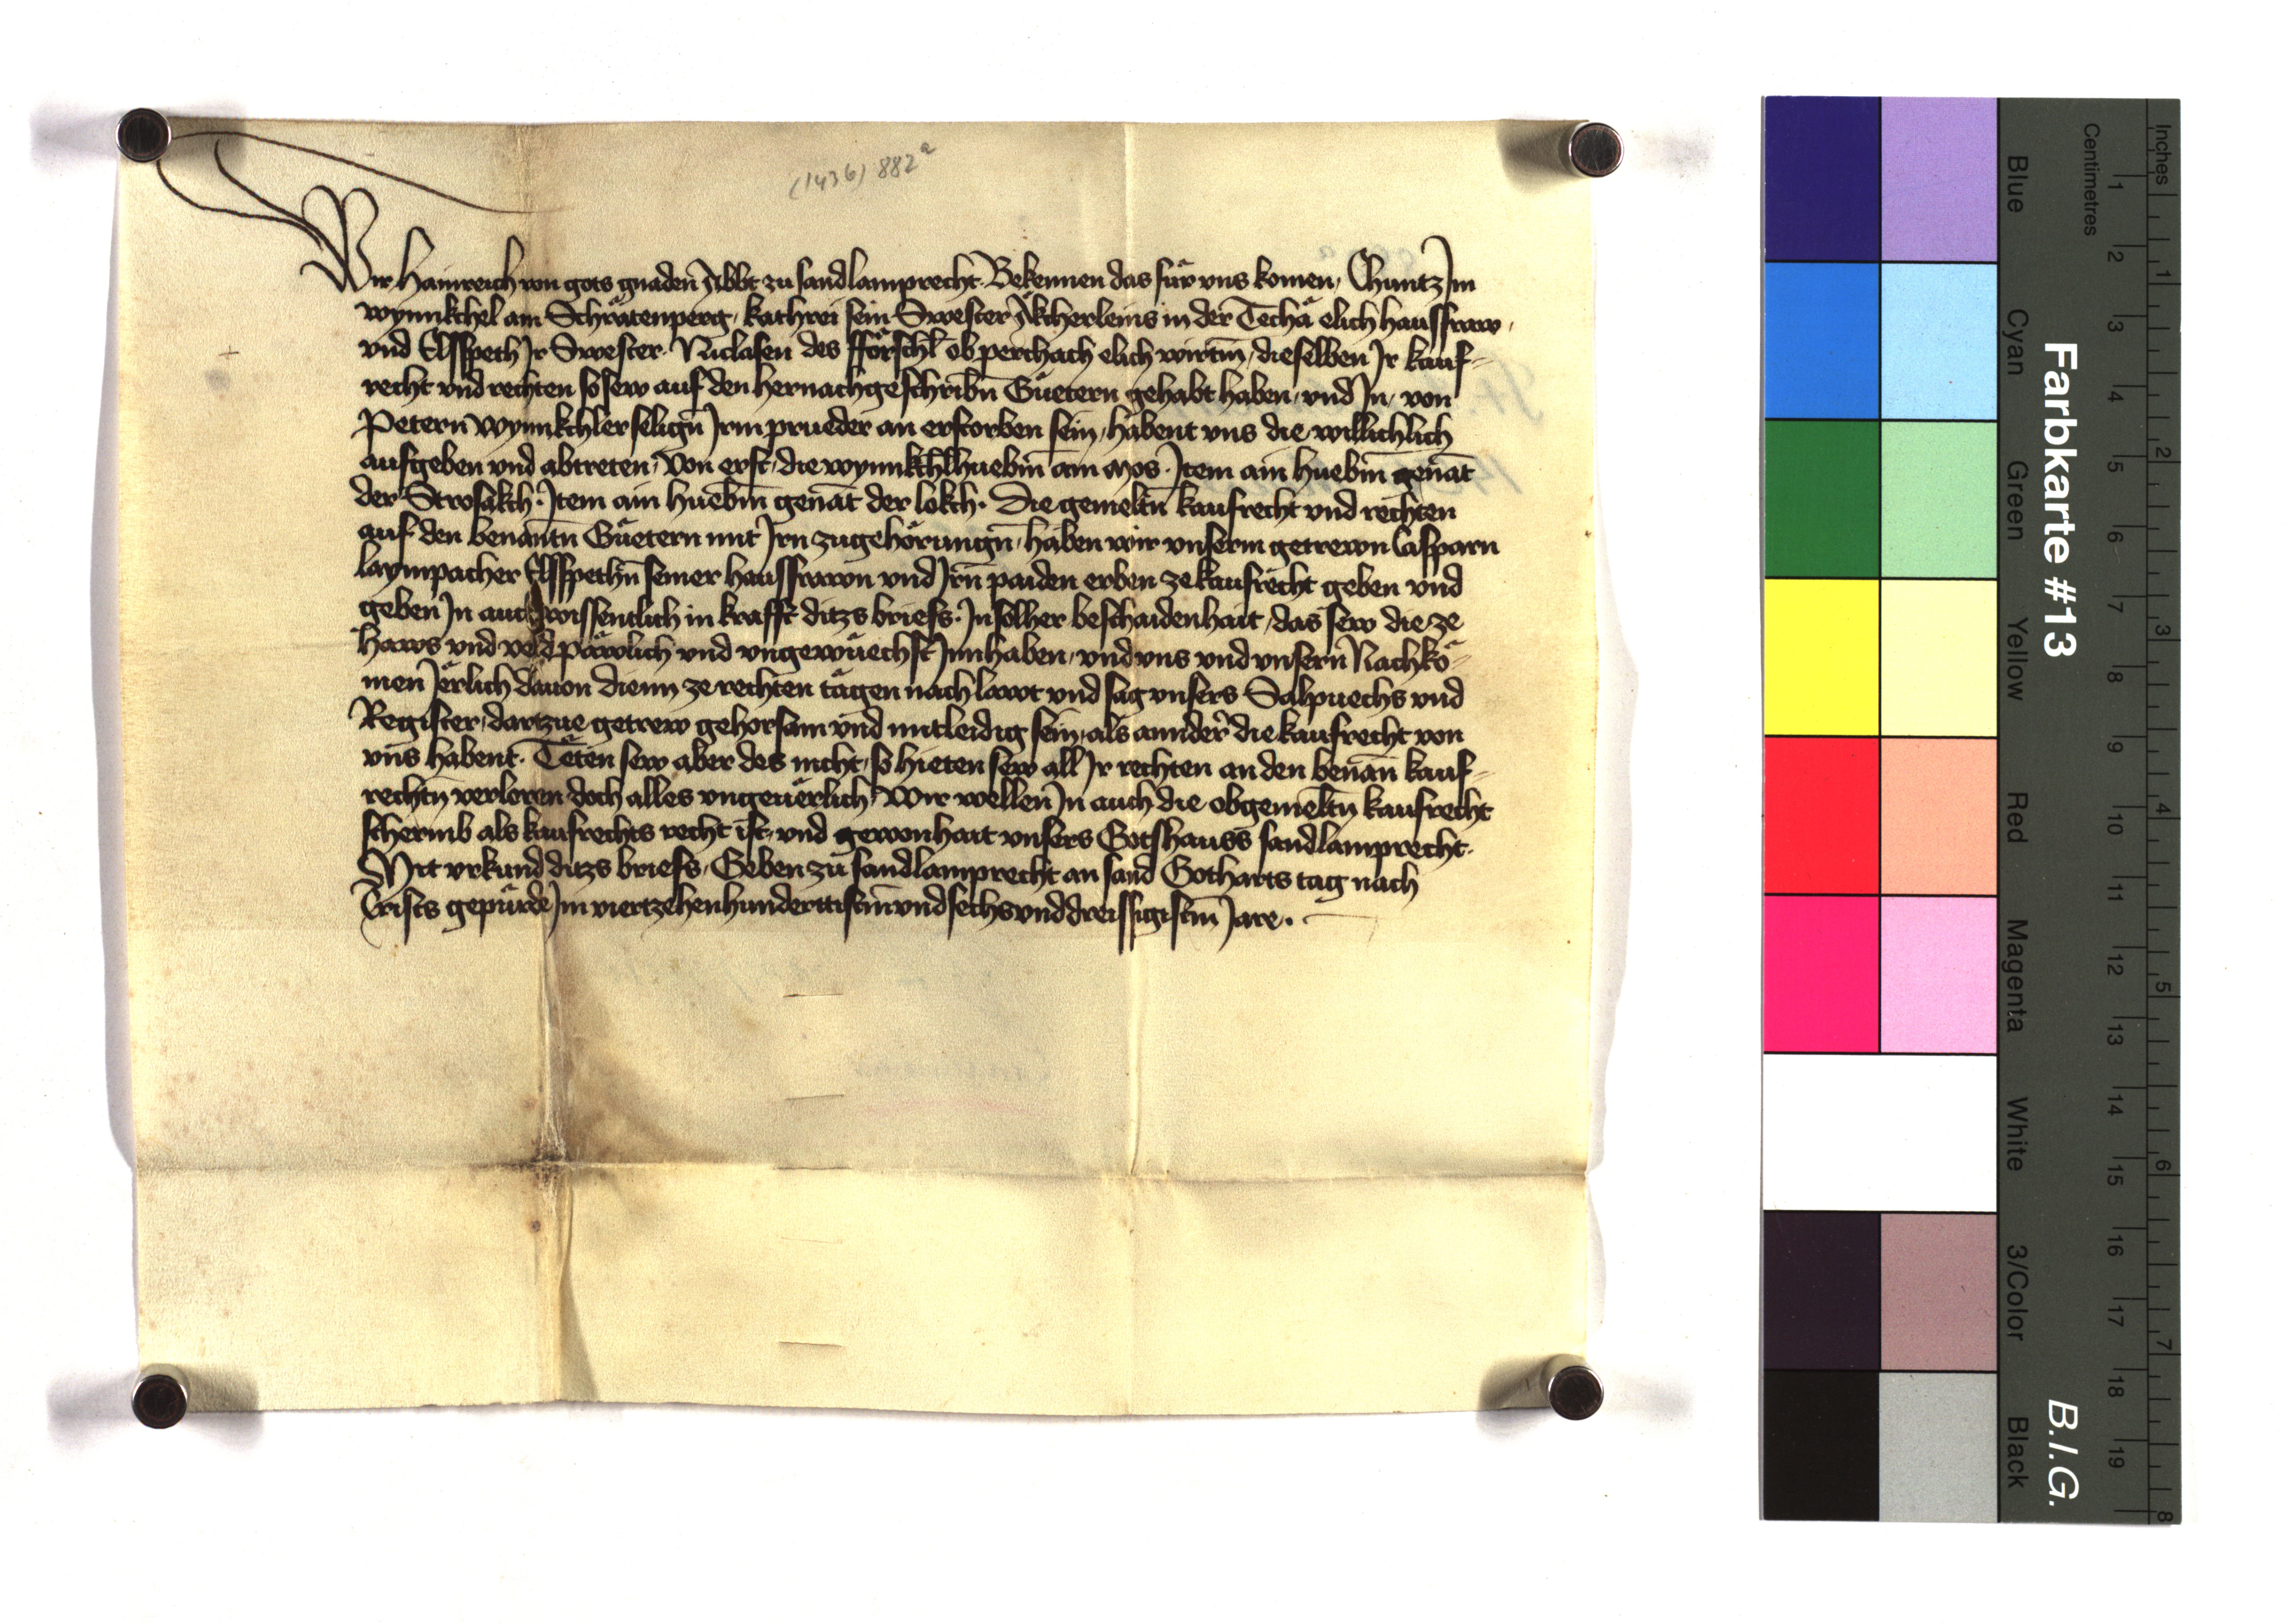 (1436) 882a
Wir Hainreich von gots gnaden Abbt zu sandlamprecht. Bekennen das für vns komen, Chuntz Jm
wynnkchel am Schrätenperg, kathrei sein Swester Äkcherleins in der Techä elich hausfraw,
vnd Elsspeth Jr Swester. Niclasen des fförschl ob perchach elich wirtin, dieselben Jr kauf-
recht vnd rechten so sew auf den hernachgeschribn̄ Gůetern gehabt haben, vnd Jn, von
Petern wynnkchler selign̄ Jrm prueder an erstorben sein, habent vns die willichlich
aufgeben vnd abtreten, Von erst, die wynnkchlhuebm̄ am Mos. Jtem ain huebm̄ genāt
der Strosäkch. Jtem ain huebm̄ genāt der lokch. Die gemeltn̄ kaufrecht vnd rechten
auf den benantn̄ Gůetern mit Jrn zugehörungn̄, haben wir vnserm getrewn Casparn
laympacher Elsspethn̄ seiner hausfrawn vnd Jrn̄ paiden erben ze kaufrecht geben vnd
geben Jn auch wissentlich in krafft ditzs briefs. Jn solher beschaidenhait, das sew die ze
Haws vnd veld päwlich vnd vngewůechst Jnnhaben, vnd vns vnd vnsern̄ Nachkö-
men Jërlich dauon dienn ze rechten tägen nach lawt vnd sag vnsers Salpuechs vnd
Register, dartzue getrew gehorsam vnd mitleidig sein, als annder die kaufrecht von
vns habent. Tëten sew aber des nicht, so hieten sew all Jr rechten an den benan̄ kauf-
rechtn̄ verloren doch alles vngeuërlich, Wir wellen Jn auch die obgemeltn̄ kaufrecht
schermb als kaufrechts recht ist, vnd gewonhait vnsers Gotshauss sandlamprecht.
Mit vrkund ditzs briefs, Geben zu sandlamprecht an sand Gotharts tag nach
Crists gepůrde Jm viertzehenhundertistm̄ vnd sechsvnddreissigistm̄ Jare.
Farbkarte #13
B.I.G.
Inches
Centimetres
Blue
Cyan
Green
Yellow
Red
Magenta
White
3/Color
Black
1 2 3 4 5 6 7 8 9 10 11 12 13 14 15 16 17 18 19
1 2 3 4 5 6 7 8